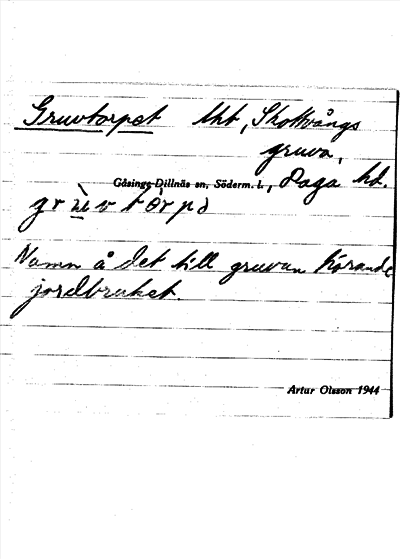 Gruvtorpet lht, Skottvångs
gruva,
Gåsinge-Dillnäs sn, Söderm. l., Daga hd.
grùvtòrpə
Namn å det till gruvan hörande
jordbruket.
Artur Olsson 1944